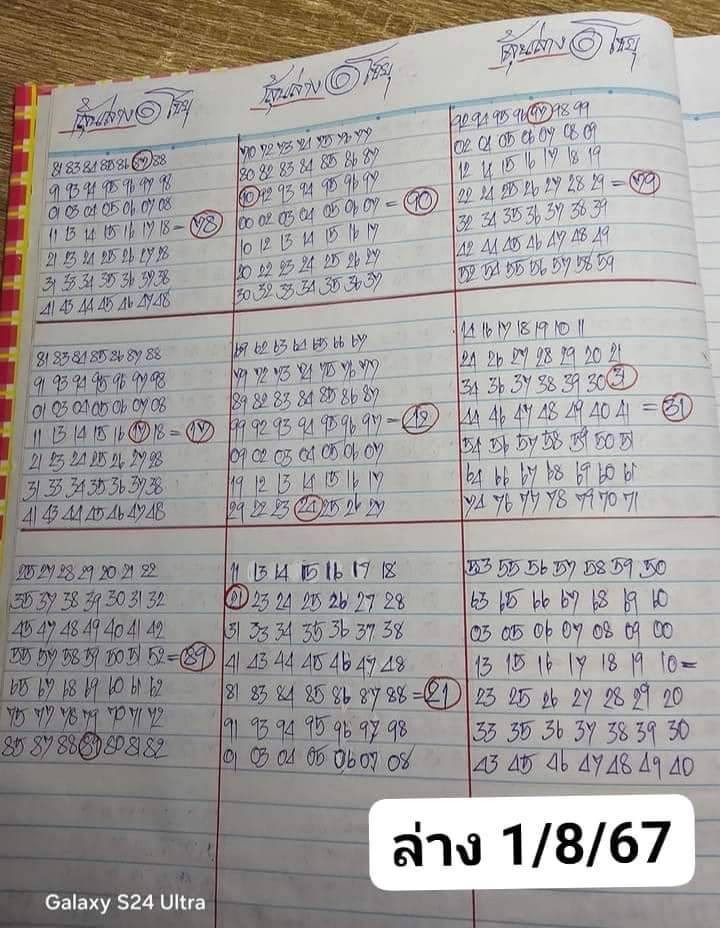 81 83 84 85 86 87 88
91 93 94 95 96 97 98
01 03 04 05 06 07 08
11 13 14 15 16 17 18 = 78
21 23 24 25 26 27 28
31 33 34 35 36 37 38
41 43 44 45 46 47 48
70 72 73 74 75 76 77
80 82 83 84 85 86 87
90 92 93 94 95 96 97
00 02 03 04 05 06 07 = 90
10 12 13 14 15 16 17
20 22 23 24 25 26 27
30 32 33 34 35 36 37
92 94 95 96 97 98 99
02 04 05 06 07 08 09
12 14 15 16 17 18 19
22 24 25 26 27 28 29 = 79
32 34 35 36 37 38 39
42 44 45 46 47 48 49
52 54 55 56 57 58 59
81 83 84 85 86 87 88
91 93 94 95 96 97 98
01 03 04 05 06 07 08
11 13 14 15 16 17 18 = 17
21 23 24 25 26 27 28
31 33 34 35 36 37 38
41 43 44 45 46 47 48
69 62 63 64 65 66 67
79 72 73 74 75 76 77
89 82 83 84 85 86 87
99 92 93 94 95 96 97 = 42
09 02 03 04 05 06 07
19 12 13 14 15 16 17
29 22 23 24 25 26 27
14 16 17 18 19 10 11
24 26 27 28 29 20 21
34 36 37 38 39 30 31
44 46 47 48 49 40 41 = 31
54 56 57 58 59 50 51
64 66 67 68 69 60 61
74 76 77 78 79 70 71
25 27 28 29 20 21 22
35 37 38 39 30 31 32
45 47 48 49 40 41 42
55 57 58 59 50 51 52 = 89
65 67 68 69 60 61 62
75 77 78 79 70 71 72
85 87 88 89 80 81 82
11 13 14 15 16 17 18
21 23 24 25 26 27 28
31 33 34 35 36 37 38
41 43 44 45 46 47 48
81 83 84 85 86 87 88 = 21
91 93 94 95 96 97 98
01 03 04 05 06 07 08
53 55 56 57 58 59 50
63 65 66 67 68 69 60
03 05 06 07 08 09 00
13 15 16 17 18 19 10 =
23 25 26 27 28 29 20
33 35 36 37 38 39 30
43 45 46 47 48 49 40
ล่าง 1/8/67
Galaxy S24 Ultra